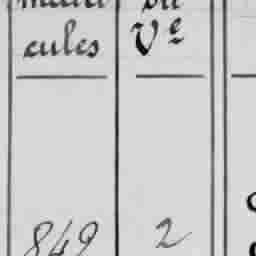 cules
Vᵉ
849
2